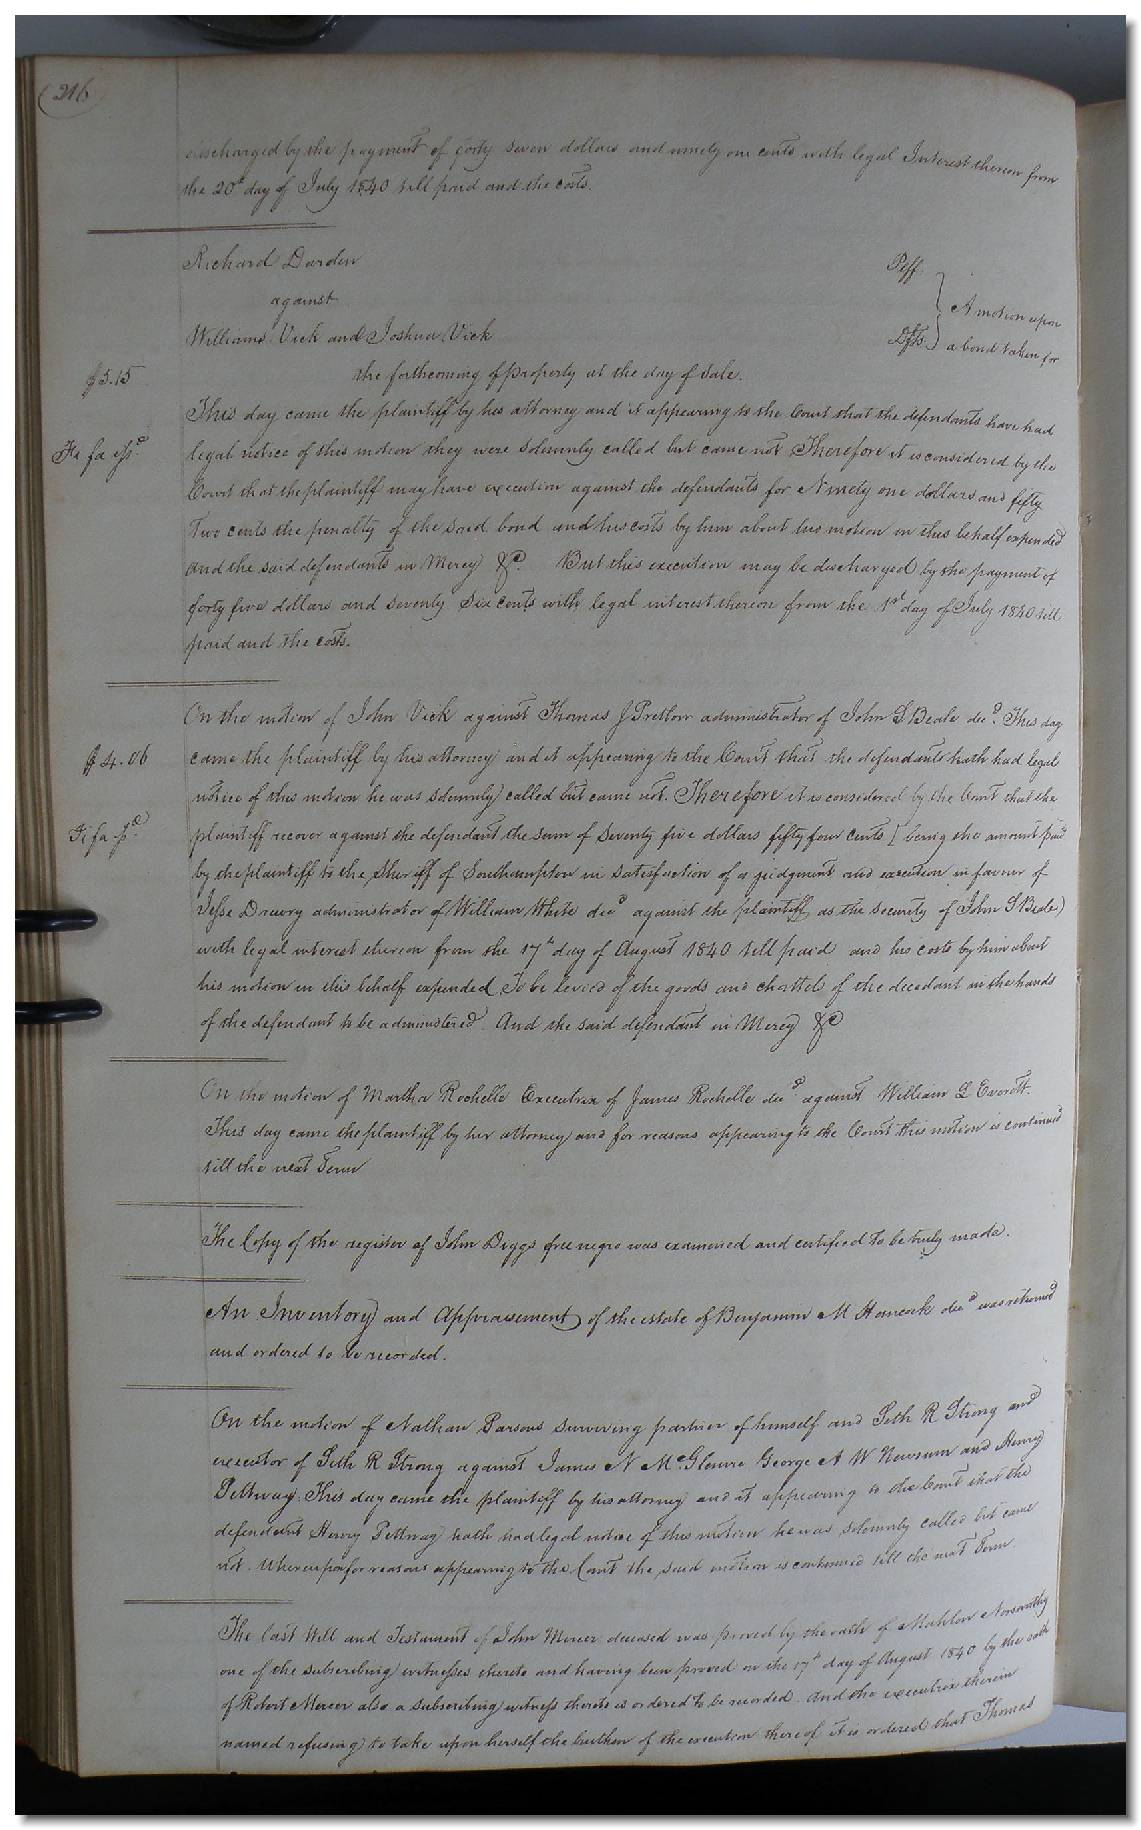 (216)
discharged by the payment of forty seven dollars and ninety one cents with legal Interest thereon from
the 20th day of July 1840 till paid and the costs.
Richard Darden Plff
against
A motion upon
Williams Vick and Joshua Vick Dfts.
a bond taken for
$5.15
the forthcoming of property at the day of Sale.
This day came the plaintiff by his attorney and it appearing to the Court that the defendants have had
Fi fa isd.
legal notice of this motion they were Solemnly called but came not Therefore it is considered by the
Court that the plaintiff may have execution against the defendants for Ninety one dollars and fifty
Two cents the penalty of the said bond and his costs by him about his motion in this behalf expended
and the said defendants in Mercy &c. But this execution may be discharged by the payment of
forty five dollars and Seventy Six cents with legal interest thereon from the 1st day of July 1840 till
paid and the costs.
On the motion of John Vick against Thomas J Pretlow administrator of John S Beale decd. This day
$4.06
came the plaintiff by his attorney and it appearing to the Court that the defendants hath had legal
notice of this motion he was Solemnly called but came not. Therefore it is considered by the Court that the
Fi fa isd
plaintiff recover against the defendant the sum of Seventy five dollars fifty four cents [being the amount paid
by the plaintiff to the Sheriff of Southampton in Satisfaction of a judgment and execution in favour of
Jesse Drewry administrator of William White decd against the plaintiff as the Security of John S Beale)
with legal interest thereon from the 17th day of August 1840 till paid and his costs by him about
his motion in this behalf expended To be levied of the goods and chattels of the decedant in the hands
of the defendant to be administered. And the said defendant in Mercy &c
On the motion of Martha Rochelle Executrix of James Rochelle decd against William L Everett.
This day came the plaintiff by her attorney and for reasons appearing to the Court this motion is continued
till the next Term
The Copy of the register of John Diggs free negro was examined and certified to be truly made.
An Inventory and Appraisement of the estate of Benjamin M Hancock decd was returned
and ordered to be recorded.
On the motion of Nathan Parsons Surviving partner of himself and Seth R Strong and
executor of Seth R Strong against James N McGlowre George A W Newsum and Henry
Pettway. This day came the plaintiff by his attorney and it appearing to the Court that the
defendant Henry Pettway hath had legal notice of this motion he was Solemnly called but came
not. Whereupon for reasons appearing to the Court the said motion is continued till the next Term.
The last Will and Testament of John Mercer deceased was proved by the oath of Mahlon Norsworthy
one of the subscribing witnesses thereto and having been proved on the 17th day of August 1840 by the oath
of Robert Mercer also a Subscribing witness thereto is ordered to be recorded. And the executrix therein
named refusing to take upon herself the burthen of the execution thereof it is ordered that Thomas